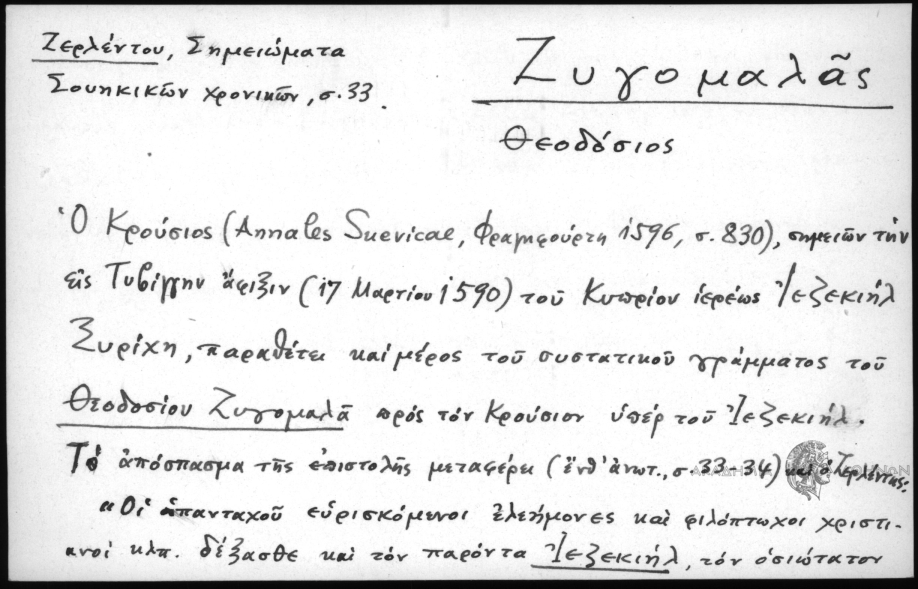 Ζερλέντου, Σημειώματα
Σουηκικῶν χρονικῶν, σ. 33.
Ζυγομαλᾶς
Θεοδόσιος
Ὁ Κρούσιος (Annales Suevicae, Φραγκφούρτη 1596, σ. 830), σημειῶν τήν
εἰς Τυβίγγην ἄφιξιν (17 Μαρτίου 1590) τοῦ Κυπρίου ἱερέως Ἰεζεκιήλ
Ξυρίχη, παραθέτει καί μέρος τοῦ συστατικοῦ γράμματος τοῦ
Θεοδοσίου Ζυγομαλᾶ πρός τόν Κρούσιον ὑπέρ τοῦ Ἰεζεκιήλ.
Τό ἀπόσπασμα τῆς ἐπιστολῆς μεταφέρει (ἔνθ' ἀνωτ., σ. 33-34) καί ὁ Ζερλέντης:
"Οἱ ἁπανταχοῦ εὑρισκόμενοι ἐλεήμονες καί φιλόπτωχοι χριστι-
ανοί κλπ. δέξασθε καί τόν παρόντα Ἰεζεκιήλ, τόν ὁσιώτατον